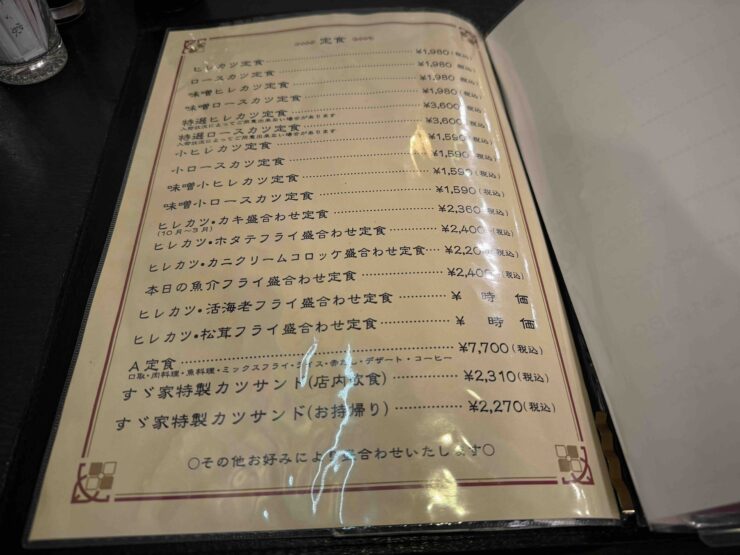 定食
ヒレカツ定食 ¥1,980(税込)
ロースカツ定食 ¥1,980(税込)
味噌ヒレカツ定食 ¥1,980(税込)
味噌ロースカツ定食 ¥1,980(税込)
特選ヒレカツ定食 ¥3,600(税込)
入荷状況によってご用意出来ない場合があります
特選ロースカツ定食 ¥3,600(税込)
入荷状況によってご用意出来ない場合があります
小ヒレカツ定食 ¥1,590(税込)
小ロースカツ定食 ¥1,590(税込)
味噌小ヒレカツ定食 ¥1,590(税込)
味噌小ロースカツ定食 ¥1,590(税込)
ヒレカツ・カキ盛合わせ定食 ¥2,360(税込)
(10月~3月)
ヒレカツ・ホタテフライ盛合わせ定食 ¥2,400(税込)
ヒレカツ・カニクリームコロッケ盛合わせ定食 ¥2,200(税込)
本日の魚介フライ盛合わせ定食 ¥2,400(税込)
ヒレカツ・活海老フライ盛合わせ定食 ¥ 時 価
ヒレカツ・松茸フライ盛合わせ定食 ¥ 時 価
A定食 ¥7,700(税込)
口取・肉料理・魚料理・ミックスフライ・ライス・赤だし・デザート・コーヒー
すゞ家特製カツサンド(店内飲食) ¥2,310(税込)
すゞ家特製カツサンド(お持帰り) ¥2,270(税込)
○その他お好みにより 合わせいたします○